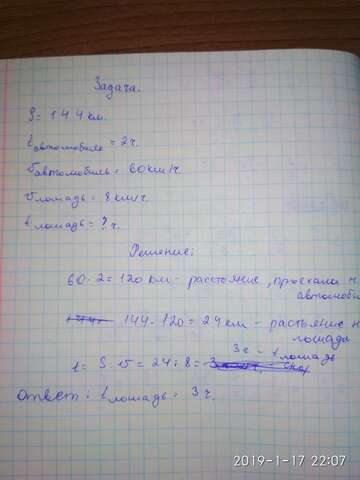 Задача.
S = 144 км.
t автомобиля = 2 ч.
υ автомобиль = 60 км/ч.
υ лошадь = 8 км/ч.
t лошадь = ? ч.
Решение:
60 · 2 = 120 км - растояние, проехали
автомоби
144 - 120 = 24 км - растояние н
лошади
3 ч - t лошадь
t = S : υ = 24 : 8 =
Ответ: t лошадь = 3 ч.
2019-1-17 22:07